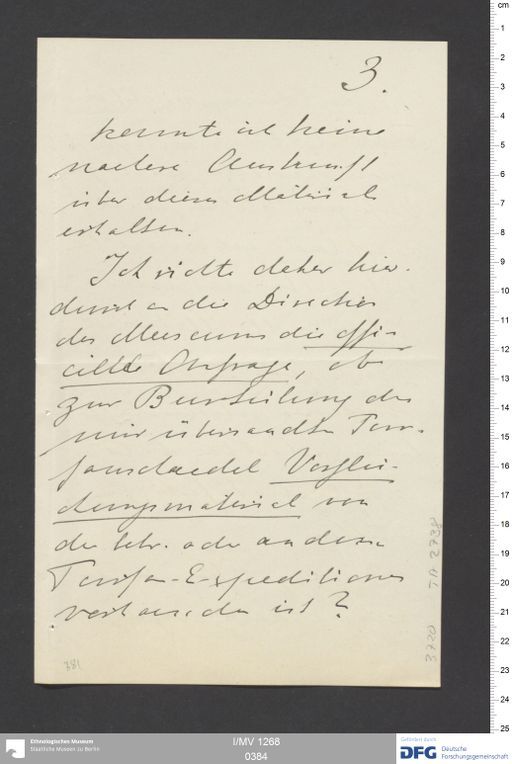 3.
konnte ich keine
nähere Auskunft
über dieses Material
erhalten.
Ich richte daher hier-
durch an die Direction
des Museums die offi-
cielle Anfrage, ob
zur Beurteilung der
mir übersandten Tur-
fanschaedel Verglei-
chungsmaterial von
der letzten oder anderen
Turfan-Expeditionen
vorhanden ist?
381
3720 TA 2738
Ethnologisches Museum
Staatliche Museen zu Berlin
I/MV 1268
0384
Gefördert durch
DFG Deutsche
Forschungsgemeinschaft
cm
1
2
3
4
5
6
7
8
9
10
11
12
13
14
15
16
17
18
19
20
21
22
23
24
25